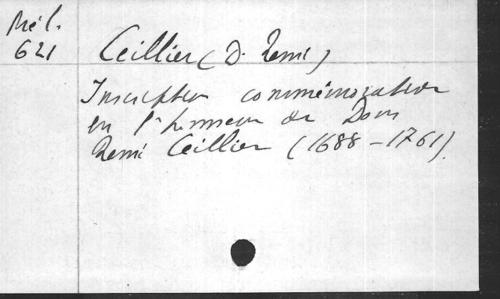 Mél.
621
Ceillier (D. Remi)
Inscription commémorative
en l'honneur de Dom
Remi Ceillier (1688-1761).